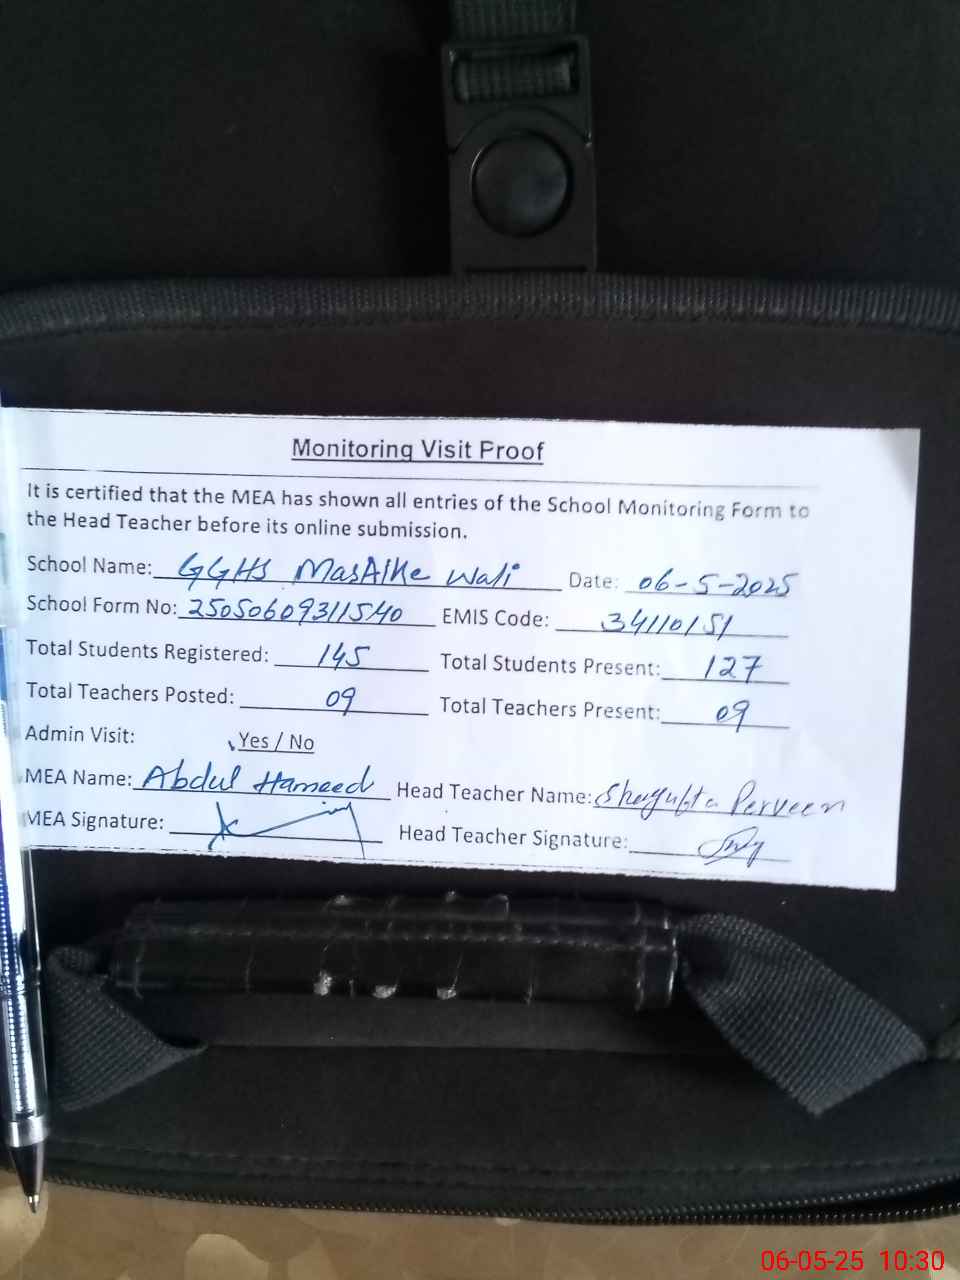 Monitoring Visit Proof
It is certified that the MEA has shown all entries of the School Monitoring Form to
the Head Teacher before its online submission.
School Name: GGHS MasAlKe Wali Date: 06-5-2025
School Form No: 2505060931540 EMIS Code: 34110151
Total Students Registered: 145 Total Students Present: 127
Total Teachers Posted: 09 Total Teachers Present: 09
Admin Visit: Yes / No
MEA Name: Abdul Hameed Head Teacher Name: Shagufta Perveen
MEA Signature: Head Teacher Signature:
06-05-25 10:30